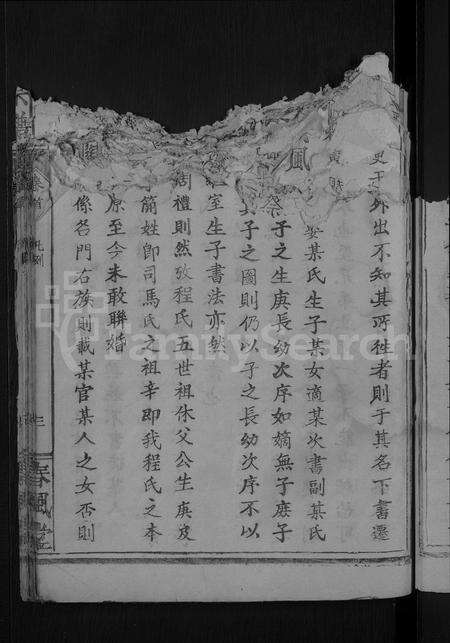 外出不知其所徃者則于其名下書遷
娶某氏生子某女適某次書副某氏
子之生庚長幼次序如嫡無子庶子
子之圖則仍以子之長幼次序不以
室生子書法亦然
周禮則然攷程氏五世祖休父公生庚及
簡姓卽司馬氏之祖辛卽我程氏之本
原至今未敢聯婚
係名門右族則載某官某人之女否則
卷首 凡例
三
春風堂
FamilySearch